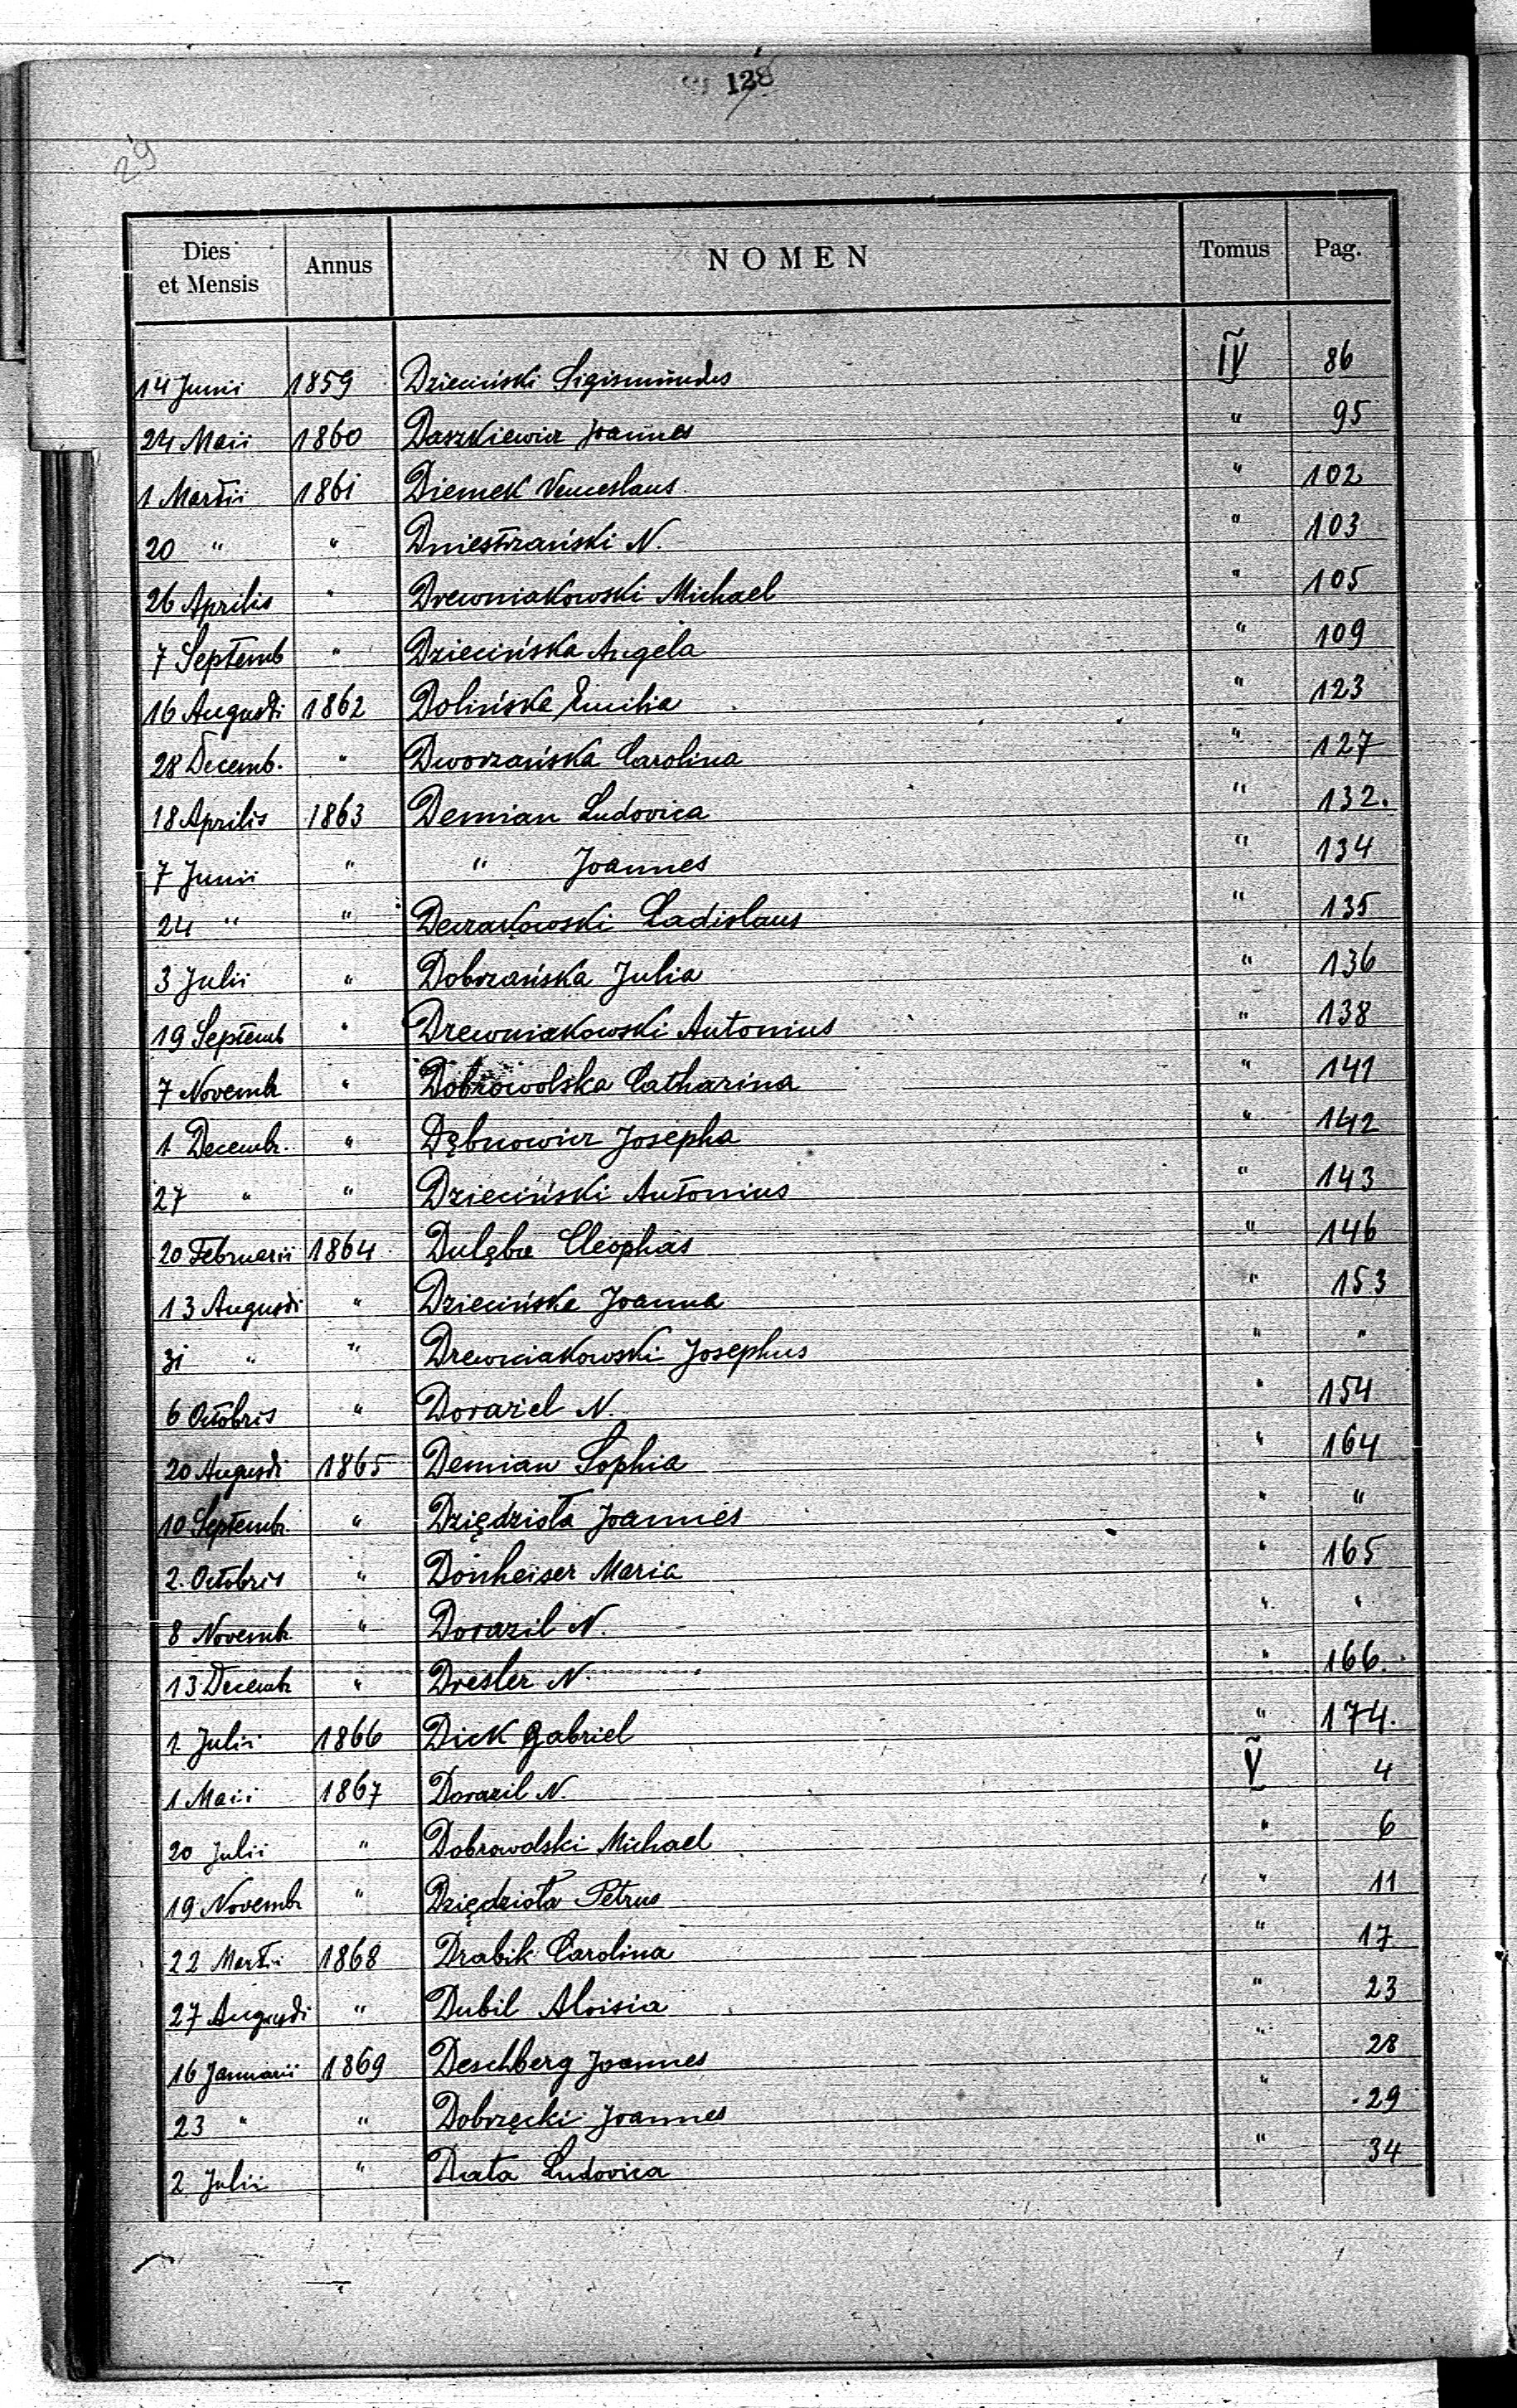 128
29
Dies et Mensis Annus NOMEN Tomus Pag.
14 Junii 1859 Dzieciński Sigismundus IV 86
24 Maii 1860 Daszkiewicz Joannes " 95
1 Martii 1861 Diemek Venceslaus " 102
20 " " Dniestrzański N. " 103
26 Aprilis " Drewniakowski Michael " 105
7 Septemb " Dziecińska Angela " 109
16 Augusti 1862 Dolińska Emilia " 123
28 Decemb. " Dworzańska Carolina " 127
18 Aprilis 1863 Demian Ludovica " 132.
7 Junii " " Joannes " 134
24 " " Ladislaus " 135
3 Julii " Dobrzańska Julia " 136
19 Septemb " Drewniakowski Antonius " 138
7 Novemb " Dobrowolska Catharina " 141
1 Decemb. " Dębnowicz Josepha " 142
27 " " Dzieciński Antonius " 143
20 Februarii 1864 Dulęba Cleophas " 146
13 Augusti " Dziecińska Joanna " 153
31 " " Drewniakowski Josephus " "
6 Octobris " Doraziel N. " 154
20 Augusti 1865 Demian Sophia " 164
10 Septemb. " Dziędzioła Joannes " "
2. Octobris " Donheiser Maria " 165
8 Novemb. " Dorazil N. " "
13 Decemb " Dresler N. " 166.
1 Julii 1866 Dick Gabriel " 174.
1 Maii 1867 Dorazil N. V 4
20 Julii " Dobrowolski Michael " 6
19 Novemb " Dziędzioła Petrus " 11
22 Martii 1868 Drabik Carolina " 17
27 Augusti " Dubil Aloisia " 23
16 Januarii 1869 Deschberg Joannes " 28
23 " " Dobrzęcki Joannes " 29
2 Julii " Duta Ludovica " 34